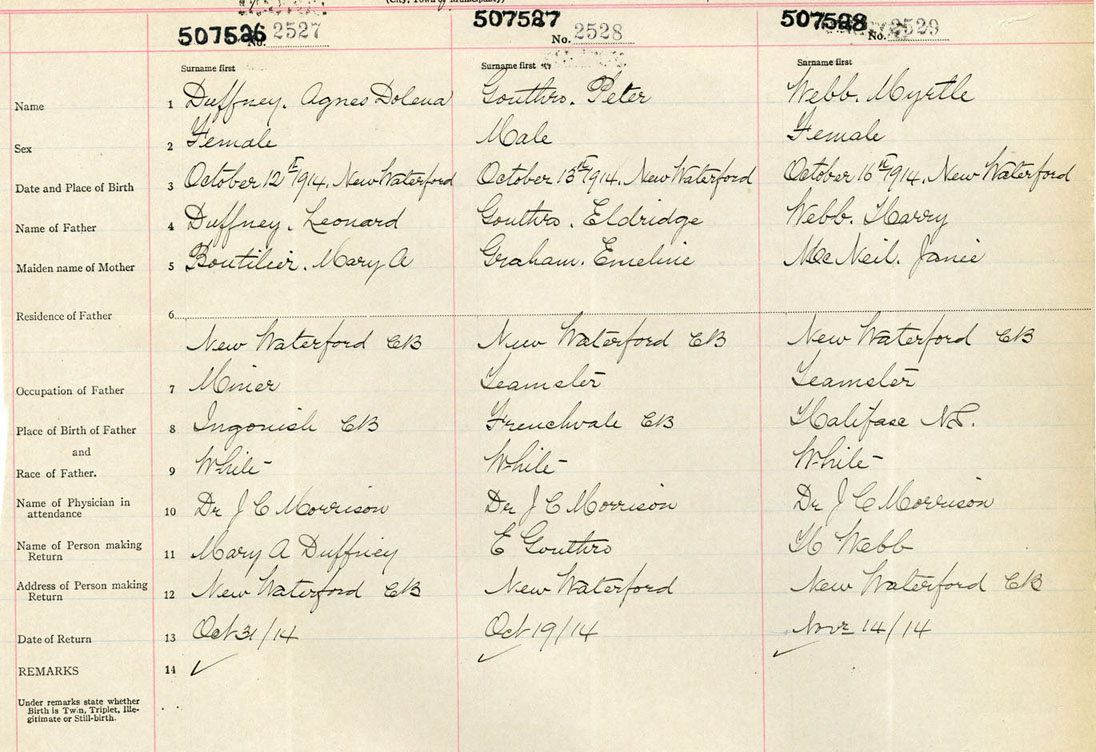 (City, Town or Municipality)
507526 No. 2527 507527 No. 2528 507528 No. 2529
Surname first Surname first Surname first
Name 1 Duffney. Agnes Dolena Gouthro. Peter Webb. Myrtle
Sex 2 Female Male Female
Date and Place of Birth 3 October 12th 1914. New Waterford October 13th 1914. New Waterford October 16th 1914. New Waterford
Name of Father 4 Duffney. Leonard Gouthro. Eldridge Webb. Harry
Maiden name of Mother 5 Boutilier. Mary A Graham. Emeline McNeil. Janie
Residence of Father 6
New Waterford CB New Waterford CB New Waterford CB
Occupation of Father 7 Miner Teamster Teamster
Place of Birth of Father 8 Ingonish CB Frenchvale CB Halifax NS.
and
Race of Father. 9 White White White
Name of Physician in
attendance 10 Dr J C Morrison Dr J C Morrison Dr J C Morrison
Name of Person making
Return 11 Mary A Duffney E Gouthro H Webb
Address of Person making
Return 12 New Waterford CB New Waterford New Waterford CB
Date of Return 13 Oct 31/14 Oct 19/14 Novr 14/14
REMARKS 14 ✓ ✓ ✓
Under remarks state whether
Birth is Twin, Triplet, Ille-
gitimate or Still-birth.